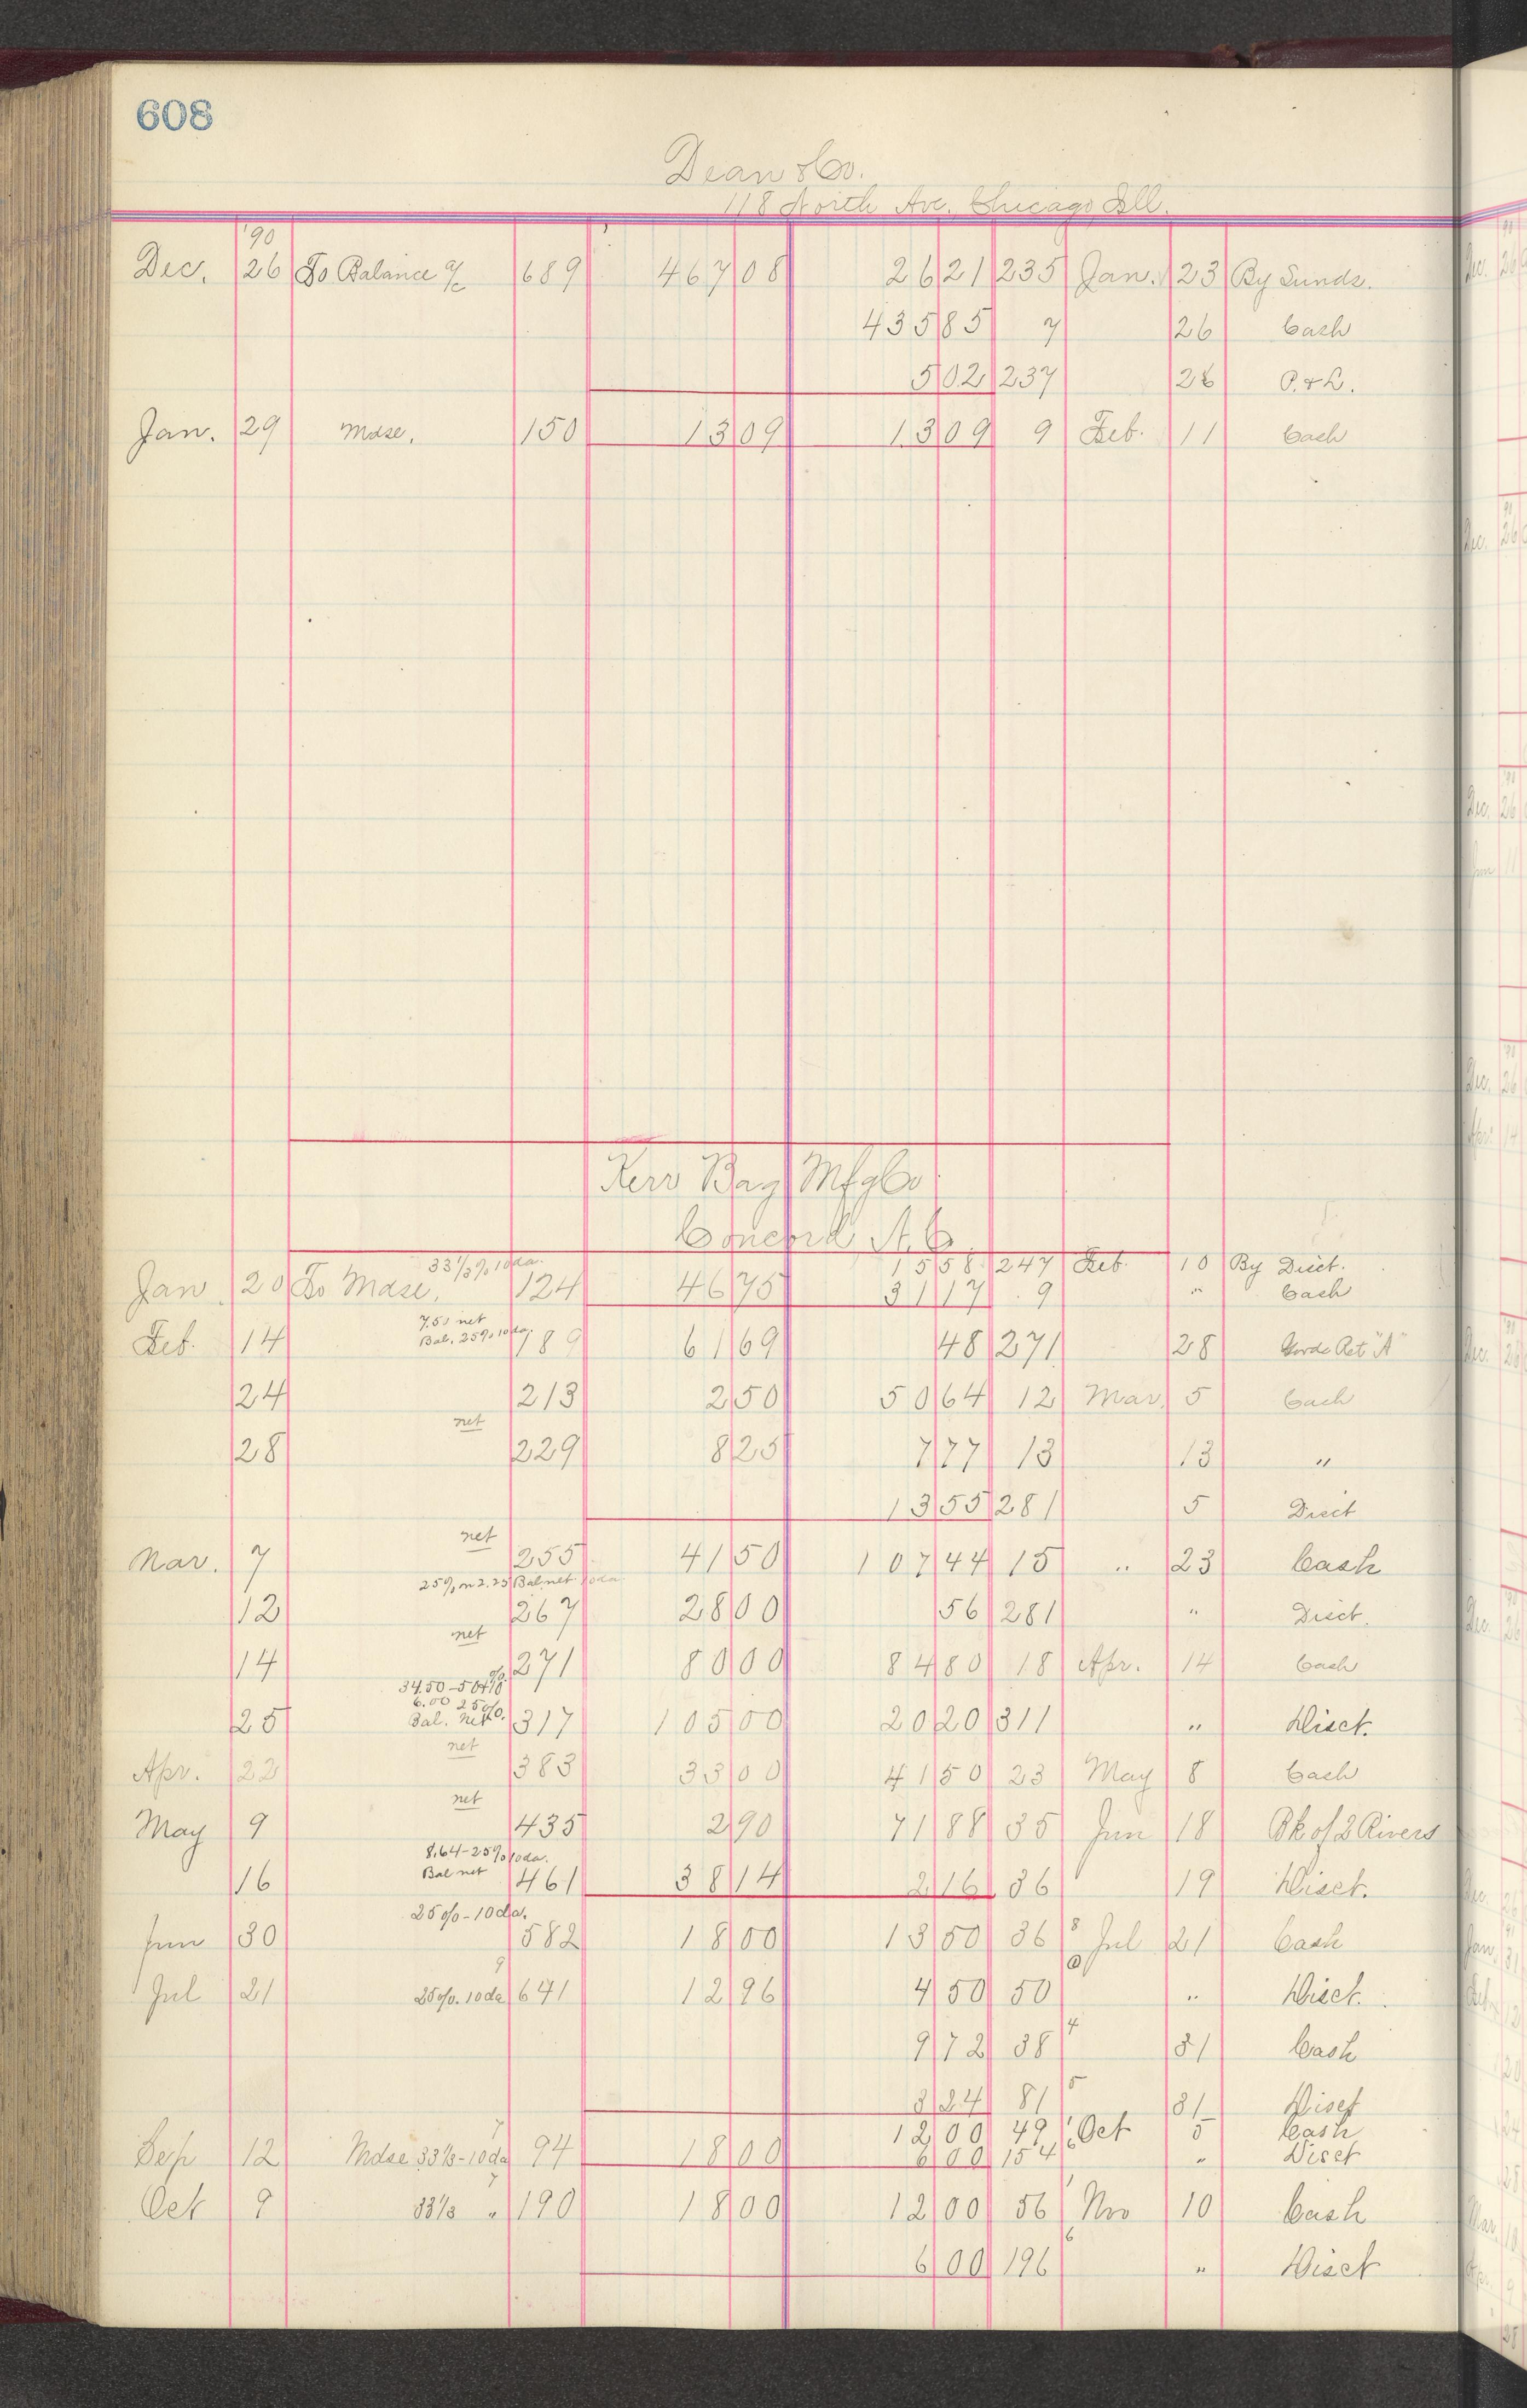 608
Dean & Co.
118 North Ave. Chicago Ill.
'90
Dec. 26 To Balance a/c 689 467 08 26 21 235 Jan. 23 By Sunds.
435 85 7 26 Cash
5 02 237 26 P. & L.
Jan. 29 Mdse. 150 13 09 13 09 9 Feb. 11 Cash
Kerr Bag Mfg Co
Concord, N. C.
33 1/3% 10 da. 15 58 247 Feb. 10 By Disct.
Jan 20 To Mdse. 124 46 75 31 17 9 " Cash
7.50 net
Bal. 25% 10 da.
Feb. 14 189 61 69 48 271 28 Ret "A"
24 213 2 50 50 64 12 Mar. 5 Cash
net
28 229 8 25 7 77 13 13 "
13 55 281 5 Disct
net
Mar. 7 255 41 50 107 44 15 " 23 Cash
25% on 2.25 Bal. net 10 da
12 267 28 00 56 281 " Disct.
net
14 271 80 00 84 80 18 Apr. 14 Cash
34.50 - 50+10%
6.00 25%
Bal. net
25 317 105 00 20 20 311 " Disct.
net
Apr. 22 383 33 00 41 50 23 May 8 Cash
net
May 9 435 2 90 71 88 35 Jun 18 Bk of 2 Rivers
8.64 - 25% 10 da.
Bal net
16 461 38 14 2 16 36 19 Disct.
25% - 10 da.
Jun 30 582 18 00 13 50 36 8 Jul 21 Cash
9
Jul 21 25% 10 da 641 12 96 4 50 50 " Disct.
9 72 38 4 31 Cash
3 24 81 5 31 Disct
12 00 49 1 Oct 5 Cash
7
Sep 12 Mdse 33 1/3 - 10 da 94 18 00 6 00 154 6 " Disct
7
Oct 9 33 1/3 " 190 18 00 12 00 56 1 Nov 10 Cash
6 00 196 6 " Disct